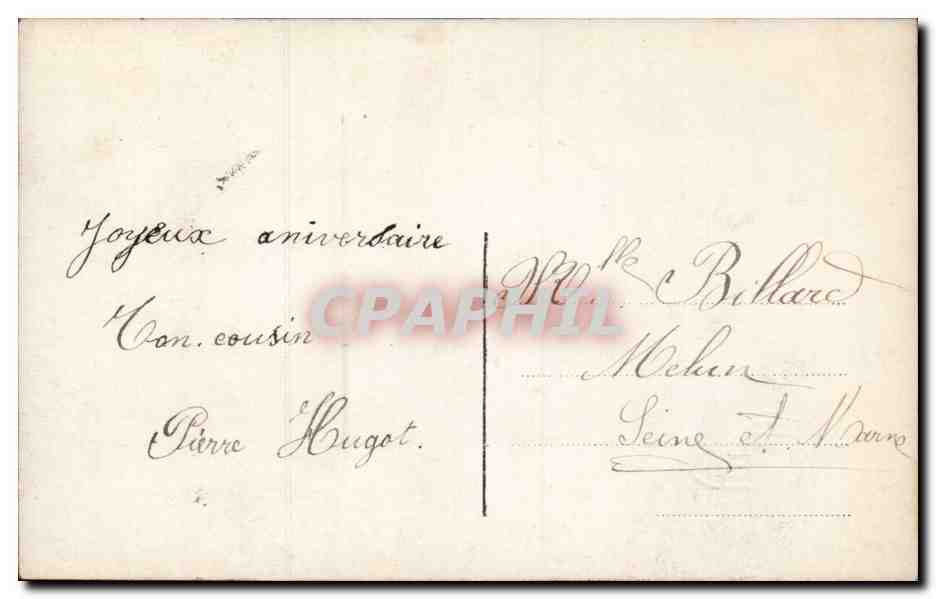 Joyeux aniversaire
Ton. cousin
Pierre Hugot.
Mlle Billard
Melun
Seine et Marne
CPAPHIL